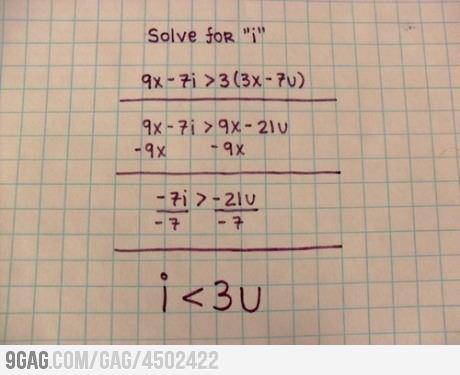 Solve for "i"
9x - 7i > 3(3x - 7u)
9x - 7i > 9x - 21u
-9x -9x
-7i > -21u
-7 -7
i < 3u
9GAG.COM/GAG/4502422